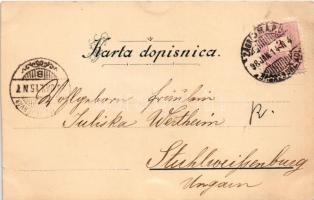 Karta dopisnica.
Wohlgeboren Fräulein
Juliska Wertheim
R.
Stuhlweißenburg
Ungarn